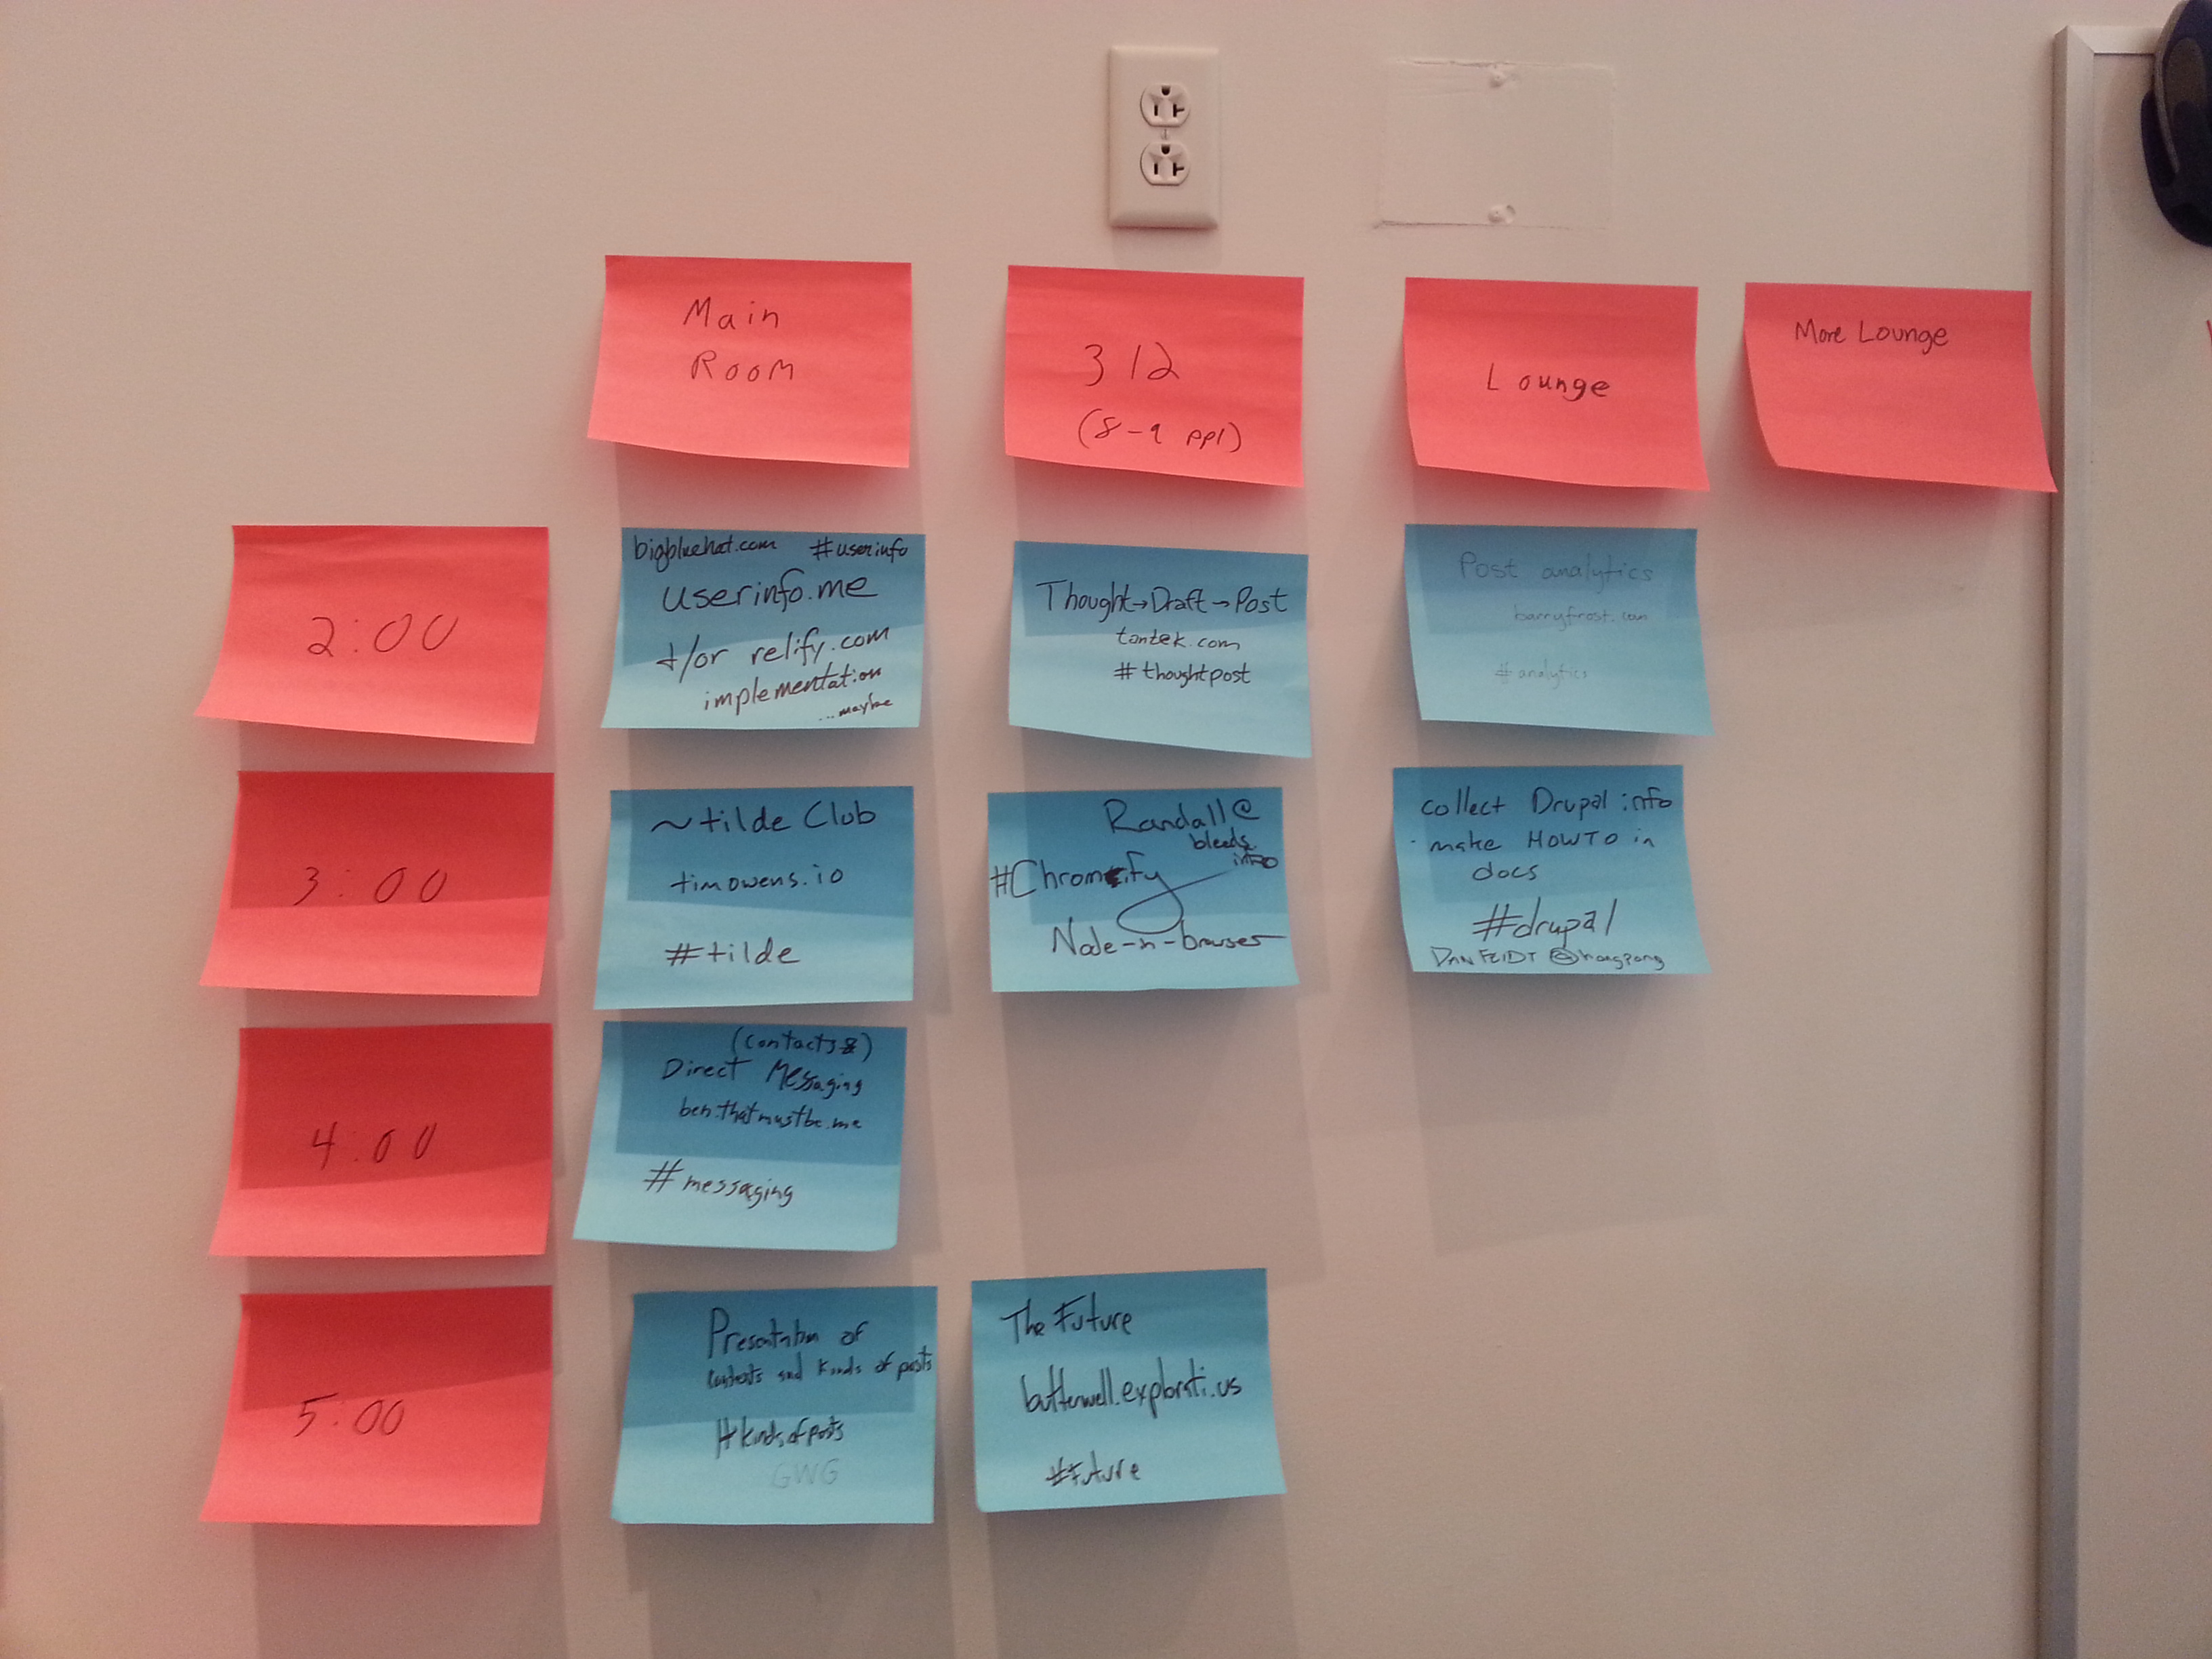 Main
Room
312
(8-9 ppl)
Lounge
More Lounge
2:00
bigbluehat.com #userinfo
userinfo.me
+/or relify.com
implementation
...maybe
Thought→Draft→Post
tantek.com
#thoughtpost
Post analytics
barryfrost.com
#analytics
3:00
~tilde Club
timowens.io
#tilde
Randall@
bleeds.
info
#Chromeify
Node-n-browser
collect Drupal info
make HOWTO in
docs
#drupal
DAN FEIDT @hongpong
4:00
(contacts &)
Direct Messaging
ben.thatmustbe.me
#messaging
5:00
Presentation of
contexts and kinds of posts
#kindsofposts
GWG
The Future
butterwell.explorati.us
#future